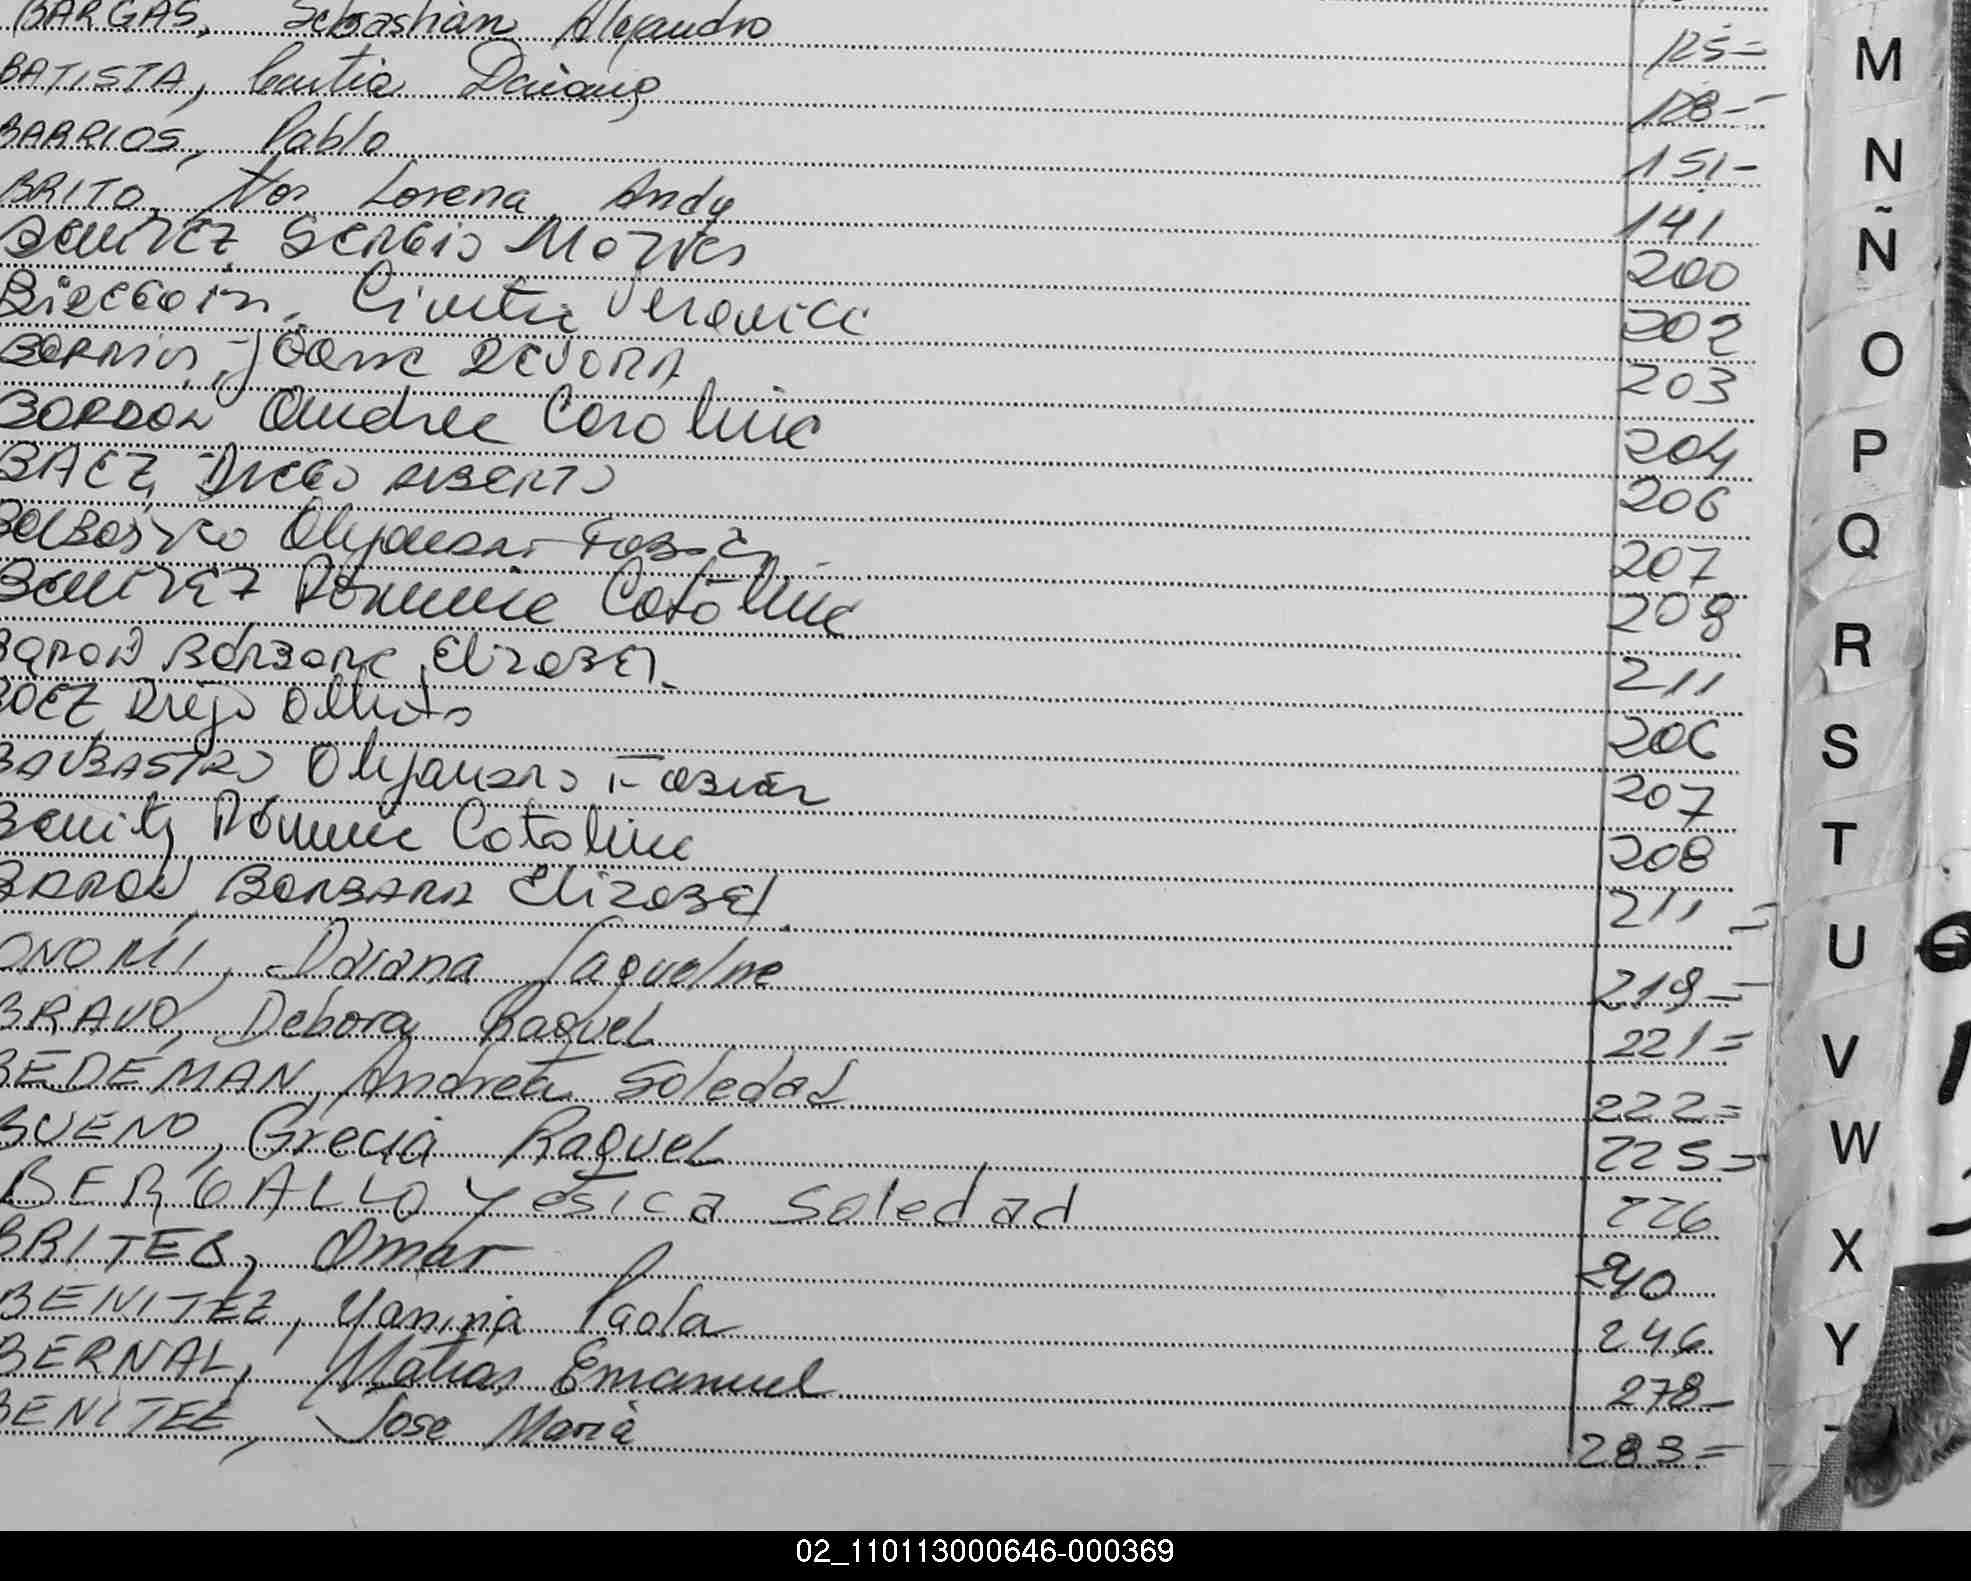 BARGAS, Sebastián Alejandro 125=
BATISTA, Daiana 128-
BARRIOS, Pablo 151-
BRITO, Lorena Andy 141
BENITEZ, SERGIO 200
Veronica 202
203
BORDON Andrea Carolina 204
BAEZ, DIEGO ALBERTO 206
Alejandro Fabian 207
BENITEZ Romina Catalina 208
BARON BARBARA ELIZABET 211
BAEZ, Diego Alberto 206
BALBASTRO Alejandro FABIAN 207
Benitz Romina Catalina 208
BARON, BARBARA ELIZABET. 211 =
ONOMI, Daiana Jaqueline 219=
BRAVO, Debora Raquel 221=
BEDEMAN, Andrea Soledad 222=
BUENO, Grecia Raquel 225=
BERGALLO Yesica Soledad 226
BRITES, Omar 240
BENITEZ, Yanina Paola 246
BERNAL, Matias Emanuel 278-
BENITEZ, Jose Maria 283=
M
N
Ñ
O
P
Q
R
S
T
U
V
W
X
Y
02_110113000646-000369